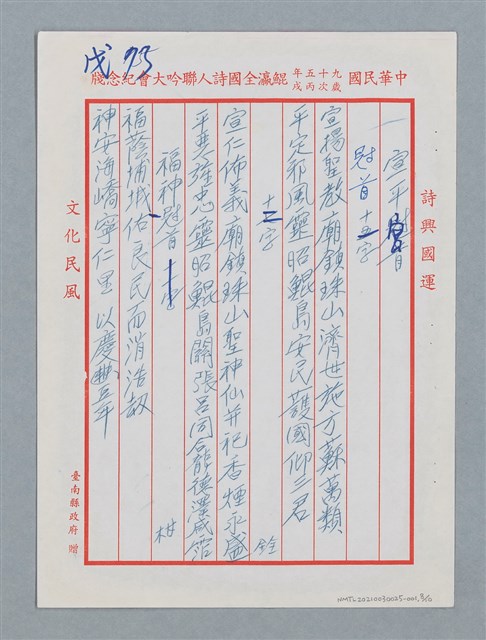 戊 75
中華民國九十五年歲次丙戌鯤瀛全國詩人聯吟大會紀念牋
詩興國運
一 宣平冠首
冠首十五字
宣揚聖教廟鎮珠山濟世施方蘇萬類
平定邪風靈昭鯤島安民護國仰三君
十二字
宣仁佈義廟鎮珠山聖神仙并祀香煙永盛
平奠強忠靈昭鯤島關張呂同合龍德澤咸霑
福神冠首十一字
福蔭埔城佑良民而消浩劫
神安海嶠寧仁里以慶豐年
文化民風
臺南縣政府 贈
NMTL20210030025-001,